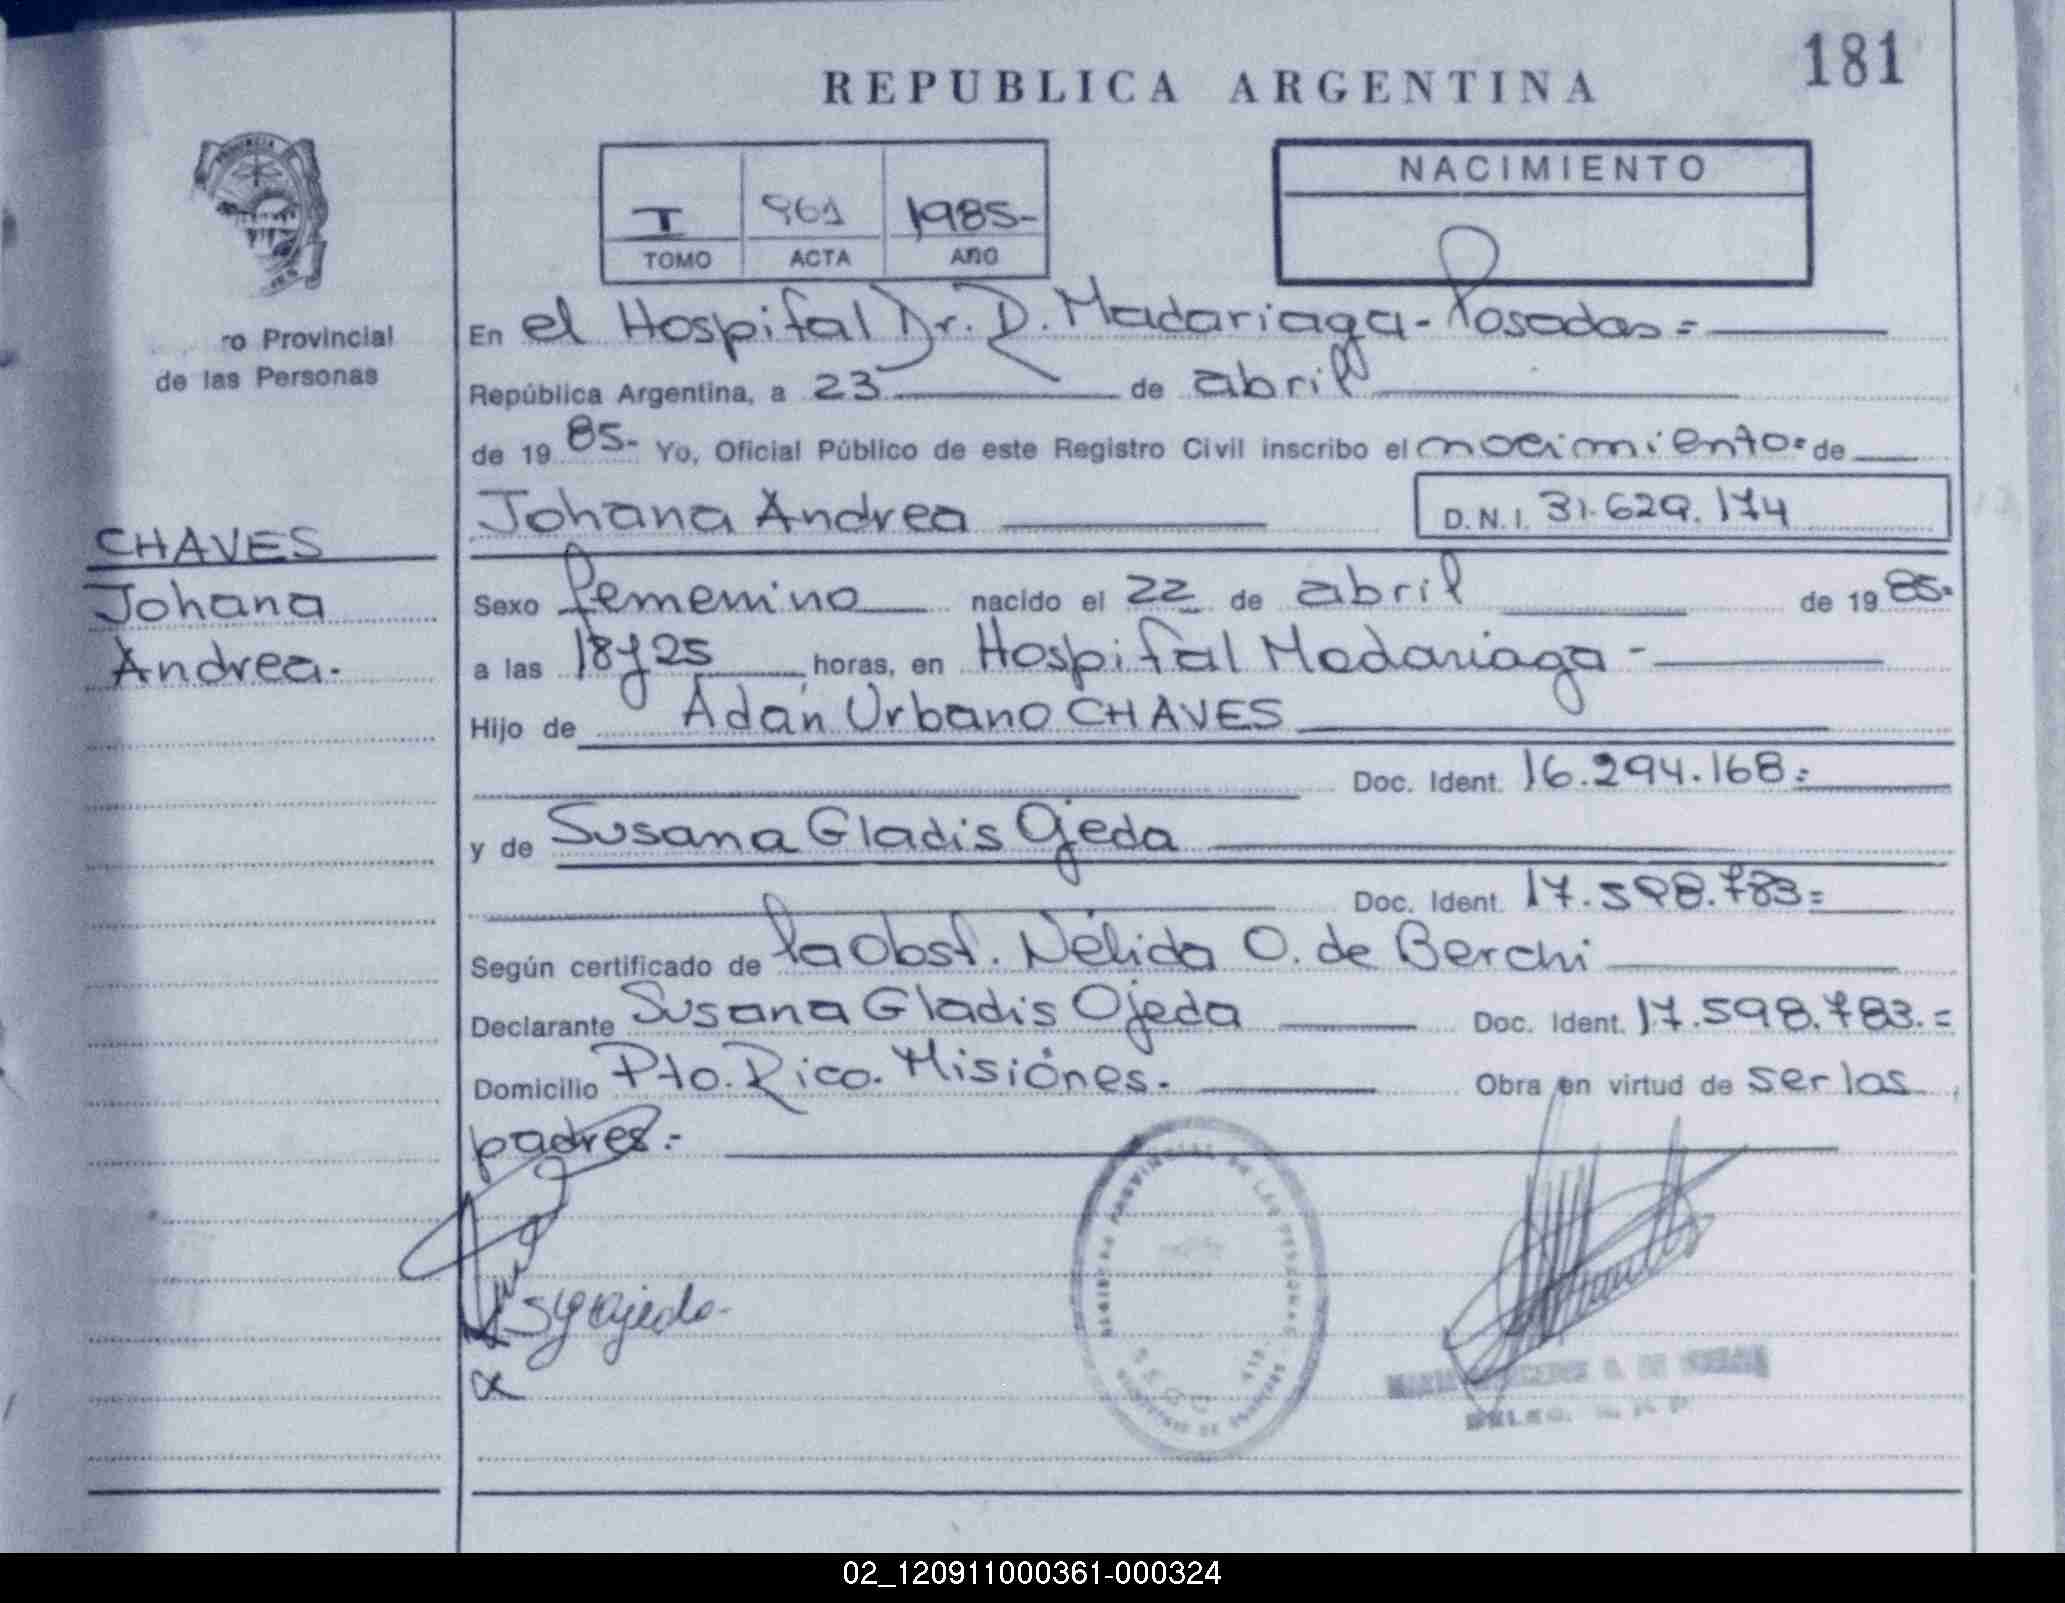 181
REPUBLICA ARGENTINA
PROVINCIA
I 961 1985-
TOMO ACTA AÑO
NACIMIENTO
ro Provincial
de las Personas
En el Hospital Dr. R. Madariaga - Posadas =
República Argentina, a 23 de abril
de 19 85- Yo, Oficial Público de este Registro Civil inscribo el nacimiento = de
Johana Andrea D.N.I. 31.629.174
CHAVES
Johana
Andrea.
Sexo femenino nacido el 22 de abril de 19 85-
a las 18y25 horas, en Hospital Madariaga -
Hijo de Adán Urbano CHAVES
Doc. Ident. 16.294.168 =
y de Susana Gladis Ojeda
Doc. Ident. 17.598.783 =
Según certificado de la Obst. Nélida O. de Berchi
Declarante Susana Gladis Ojeda Doc. Ident. 17.598.783. =
Domicilio Pto. Rico. Misiónes. Obra en virtud de ser los
padres.-
REGISTRO PROVINCIAL DE LAS PERSONAS
02_120911000361-000324